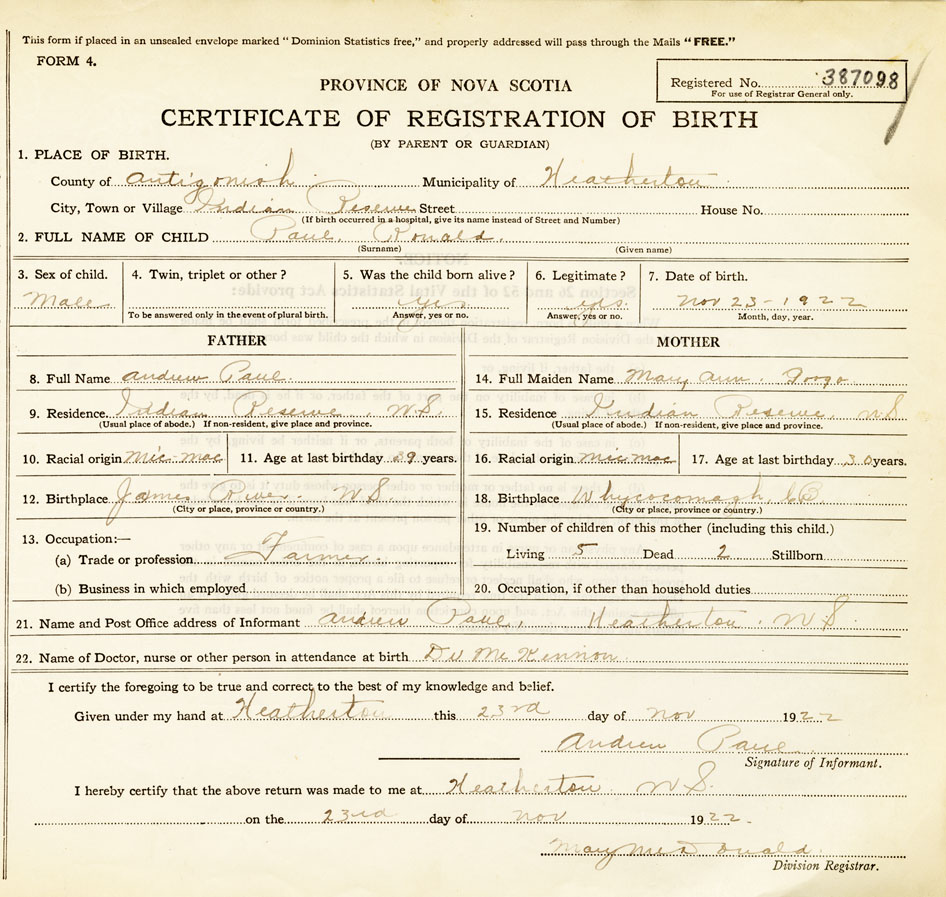 This form if placed in an unsealed envelope marked "Dominion Statistics free," and properly addressed will pass through the Mails "FREE."
FORM 4.
PROVINCE OF NOVA SCOTIA
Registered No. 387098
For use of Registrar General only.
CERTIFICATE OF REGISTRATION OF BIRTH
(BY PARENT OR GUARDIAN)
1. PLACE OF BIRTH.
County of Antigonish Municipality of Heatherton
City, Town or Village Indian Reserve Street House No.
(If birth occurred in a hospital, give its name instead of Street and Number)
2. FULL NAME OF CHILD Paul, Ronald.
(Surname) (Given name)
3. Sex of child. 4. Twin, triplet or other? 5. Was the child born alive? 6. Legitimate? 7. Date of birth.
Male yes yes. Nov 23-1922
To be answered only in the event of plural birth. Answer, yes or no. Answer, yes or no. Month, day, year.
FATHER MOTHER
8. Full Name Andrew Paul. 14. Full Maiden Name Mary Ann
9. Residence. Indian Reserve. N.S. 15. Residence Indian Reserve, NS
(Usual place of abode.) If non-resident, give place and province. (Usual place of abode.) If non-resident, give place and province.
10. Racial origin Mic-mac 11. Age at last birthday 9 years. 16. Racial origin Micmac 17. Age at last birthday 30 years.
12. Birthplace James River. N.S. 18. Birthplace Whycocomagh, CB
(City or place, province or country.) (City or place, province or country.)
13. Occupation:— 19. Number of children of this mother (including this child.)
(a) Trade or profession Farmer Living 5 Dead 2 Stillborn
(b) Business in which employed 20. Occupation, if other than household duties
21. Name and Post Office address of Informant Andrew Paul, Heatherton. N.S.
22. Name of Doctor, nurse or other person in attendance at birth Dr McKinnon
I certify the foregoing to be true and correct to the best of my knowledge and belief.
Given under my hand at Heatherton this 23rd day of Nov 1922
Andrew Paul
Signature of Informant.
I hereby certify that the above return was made to me at Heatherton N.S.
on the 23rd day of Nov 1922.
Mary McDonald.
Division Registrar.